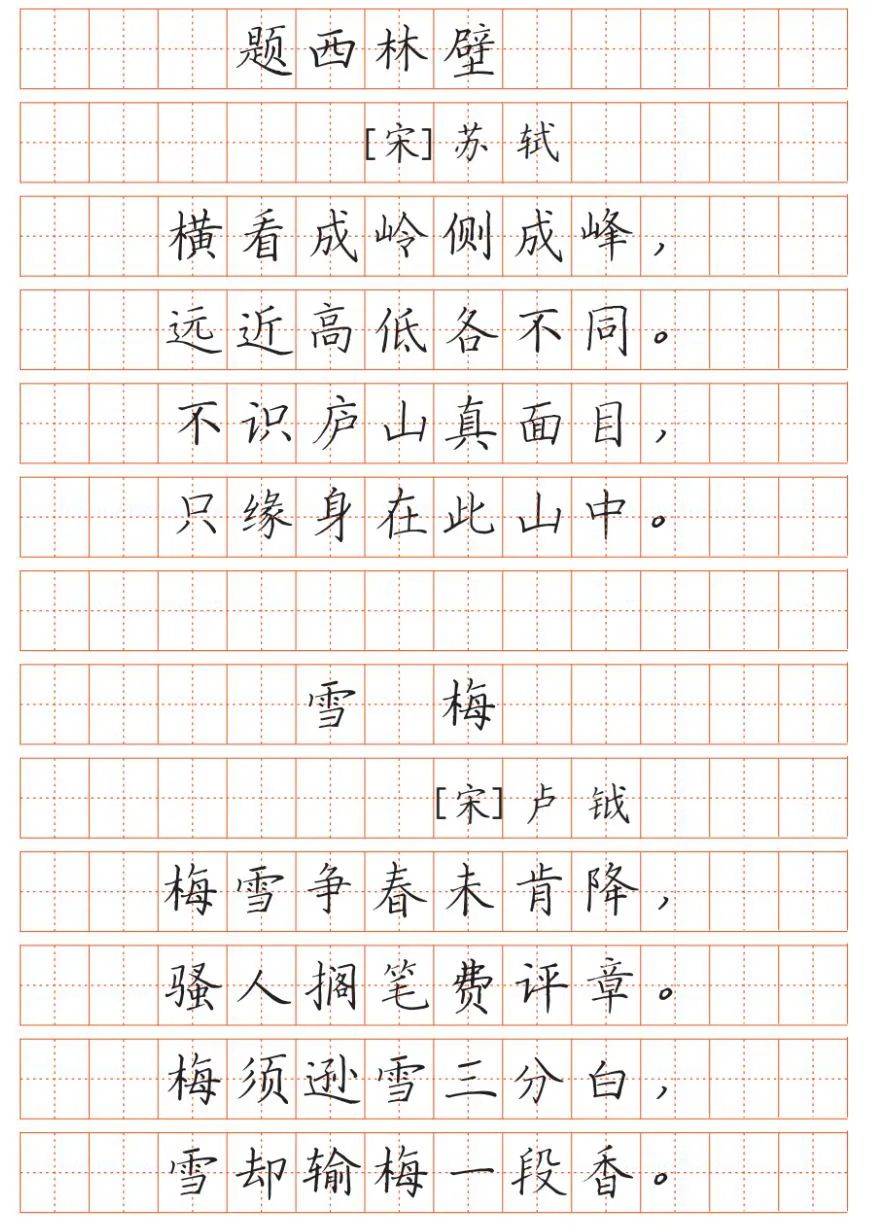 题西林壁
[宋]苏轼
横看成岭侧成峰，
远近高低各不同。
不识庐山真面目，
只缘身在此山中。
雪 梅
[宋]卢钺
梅雪争春未肯降，
骚人搁笔费评章。
梅须逊雪三分白，
雪却输梅一段香。